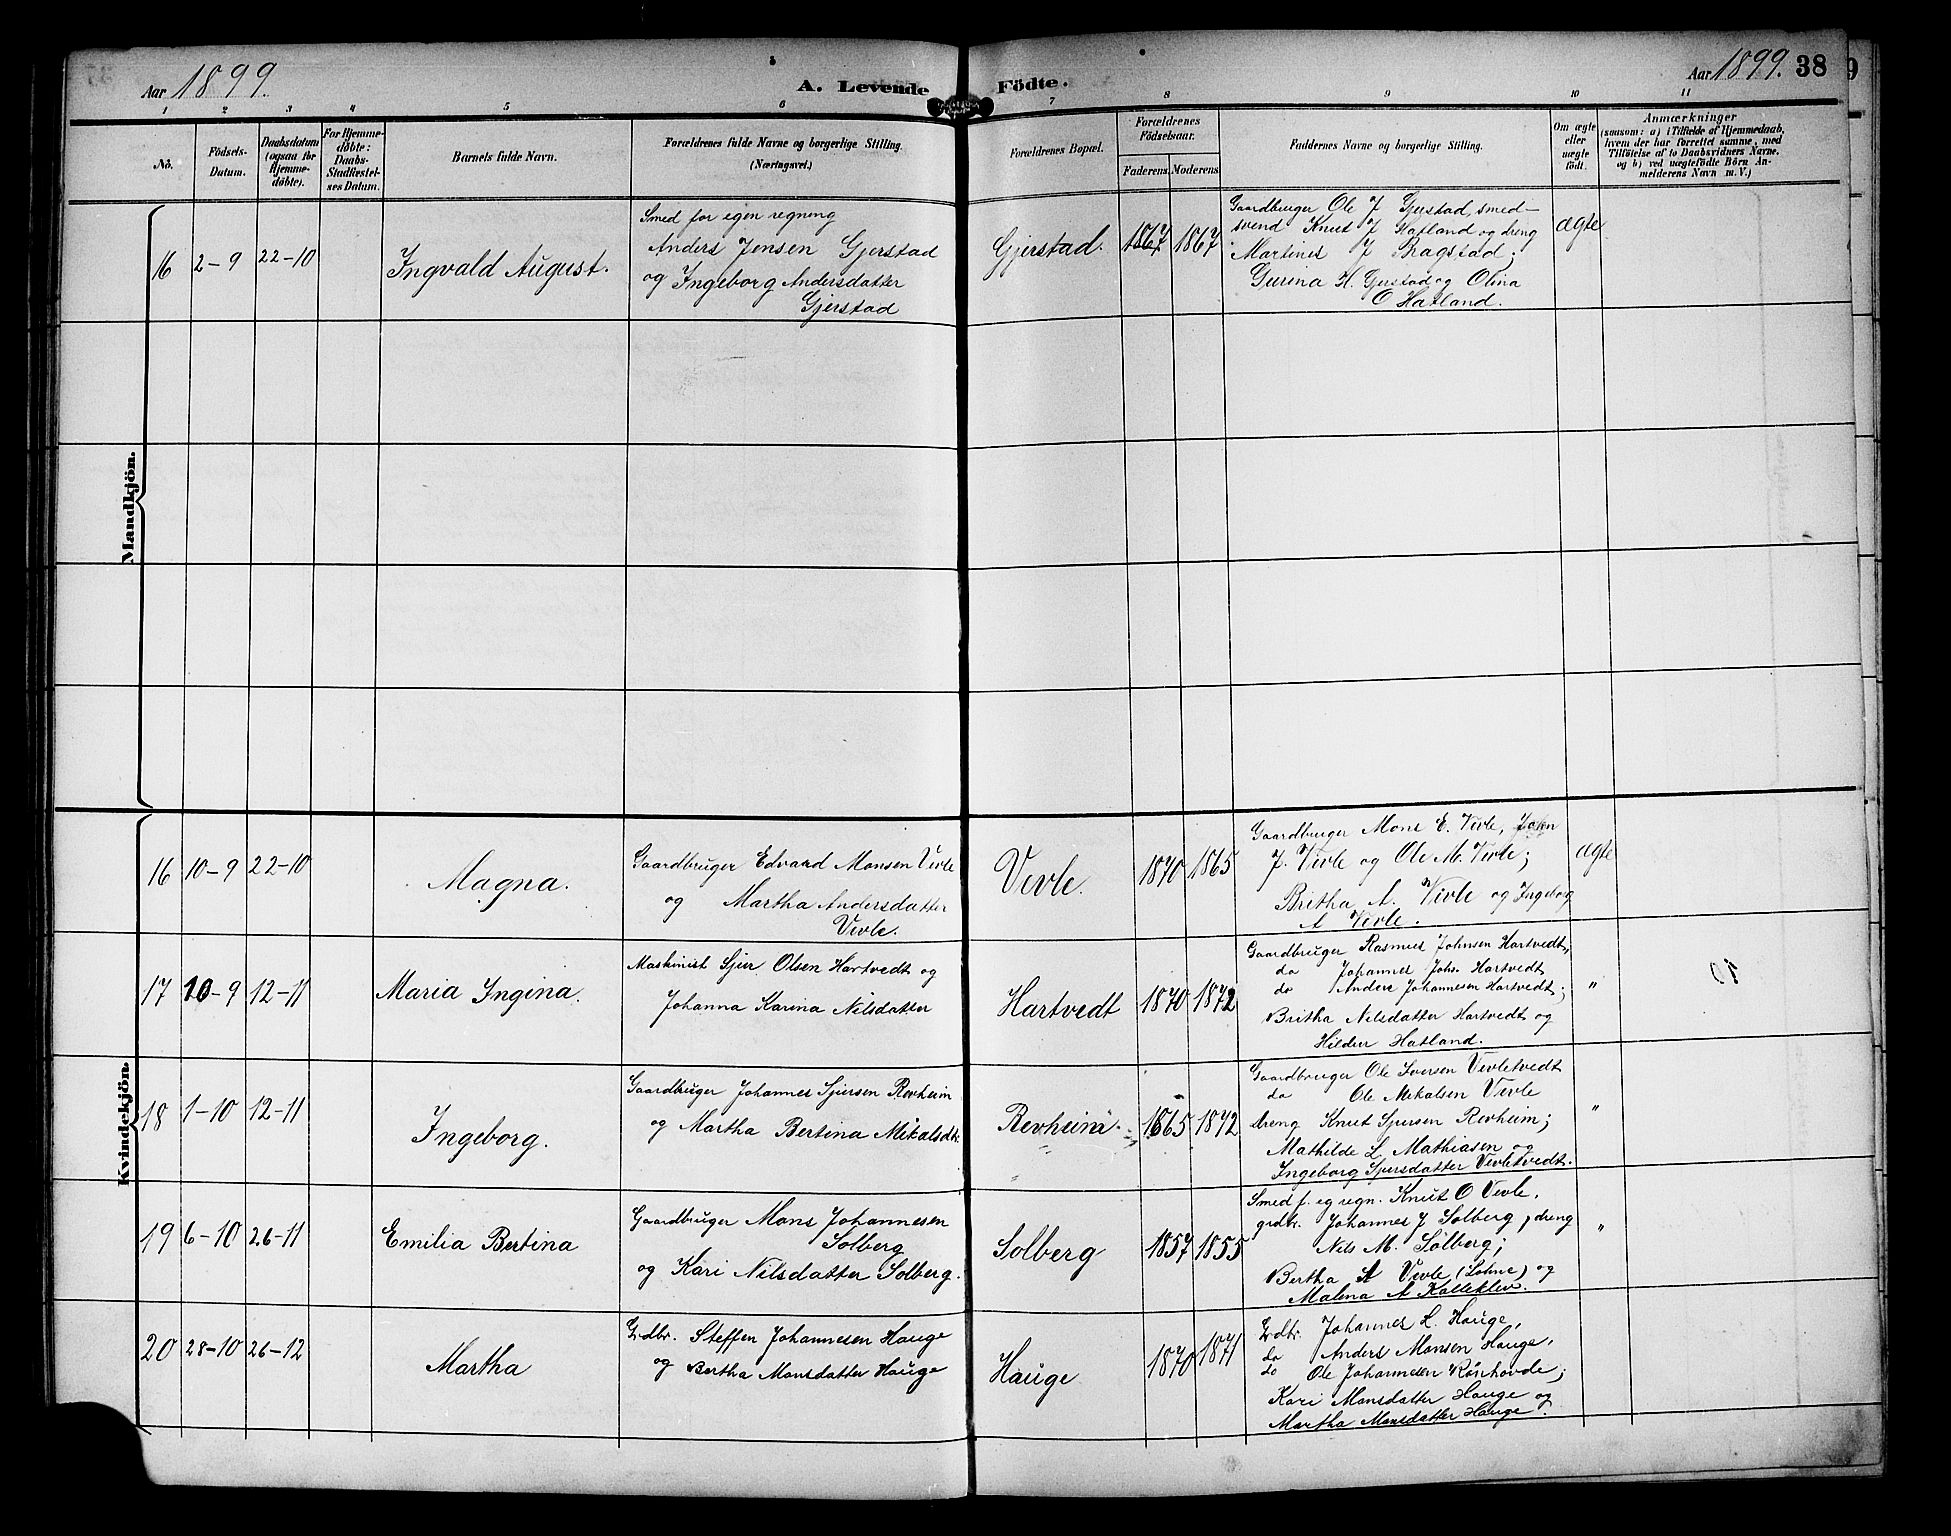 Aar 1899. A. Levende Födte. Aar 1899. 38
1 2 3 4 5 6 7 8 9 10 11
No.
Födsels-
Datum.
Daabsdatum
(ogsaa for
Hjemme-
döbte).
For Hjemme-
döbte:
Daabs-
Stadfæstel-
ses Datum.
Barnets fulde Navn.
Forældrenes fulde Navne og borgerlige Stilling.
(Næringsvei.)
Forældrenes Bopæl.
Forældrenes
Födselsaar.
Faderens. Moderens.
Faddernes Navne og borgerlige Stilling.
Om ægte
eller
uægte
födt.
Anmærkninger
(saasom: a) i Tilfælde af Hjemmedaab,
hvem der har forrettet samme, med
Tilföielse af to Daabsvidners Navne.
og b) ved uægtefödte Börn An-
melderens Navn m. V.)
Mandkjön.
16 2-9 22-10
Ingvald August.
Smed for egen regning
Anders Jensen Gjerstad
og Ingeborg Andersdatter
Gjerstad
Gjerstad. 1867 1867
Gaardbruger Ole J Gjerstad, smed-
svend Knut J Hatland og dreng
Martines J Bragstad;
Gurina H. Gjerstad og Olina
O Hatland.
ægte
Kvindekjön.
16 10-9 22-10
Magna.
Gaardbruger Edvard Monsen Vevle
og Martha Andersdatter
Vevle.
Vevle. 1870 1865
Gaardbruger Mons E. Vevle, John
J. Vevle og Ole M. Vevle;
Britha A. Vevle og Ingeborg
A Vevle.
ægte
17 10-9 12-11
Maria Ingina.
Maskinist Sjur Olsen Hartvedt og
Johanna Karina Nilsdatter
Hartvedt 1870 1872
Gaardbruger Rasmus Johnsen Hartvedt,
do Johannes Johs. Hartvedt
do Anders Johannesen Hartvedt;
Britha Nilsdatter Hartvedt og
Hildur Hatland.
"
18 1-10 12-11
Ingeborg.
Gaardbruger Johannes Sjursen Revheim
og Martha Bertina Mikalsdtr.
Revheim. 1865 1872
Gaardbruger Ole Iversen Vevletvedt
do Ole Mikalsen Vevle
dreng Knut Sjursen Revheim;
Mathilde L Mathiasen og
Ingeborg Sjursdatter Vevletvedt.
"
19 6-10 26-11
Emilia Bertina
Gaardbruger Mons Johannesen
Solberg
og Kari Nilsdatter Solberg.
Solberg 1857 1855
Smed f. eg regn. Knut O Vevle,
grdbr. Johannes J Solberg, dreng
Nils M. Solberg;
Bertha A Vevle (Lohne) og
Malena A Kalleklev.
"
20 28-10 26-12
Martha
Grdbr. Steffen Johannesen Hauge
og Bertha Monsdatter Hauge
Hauge 1870 1871
Grdbr. Johannes L. Hauge,
do Anders Monsen Hauge,
do Ole Johannesen Röishovde;
Kari Monsdatter Hauge og
Martha Monsdatter Hauge.